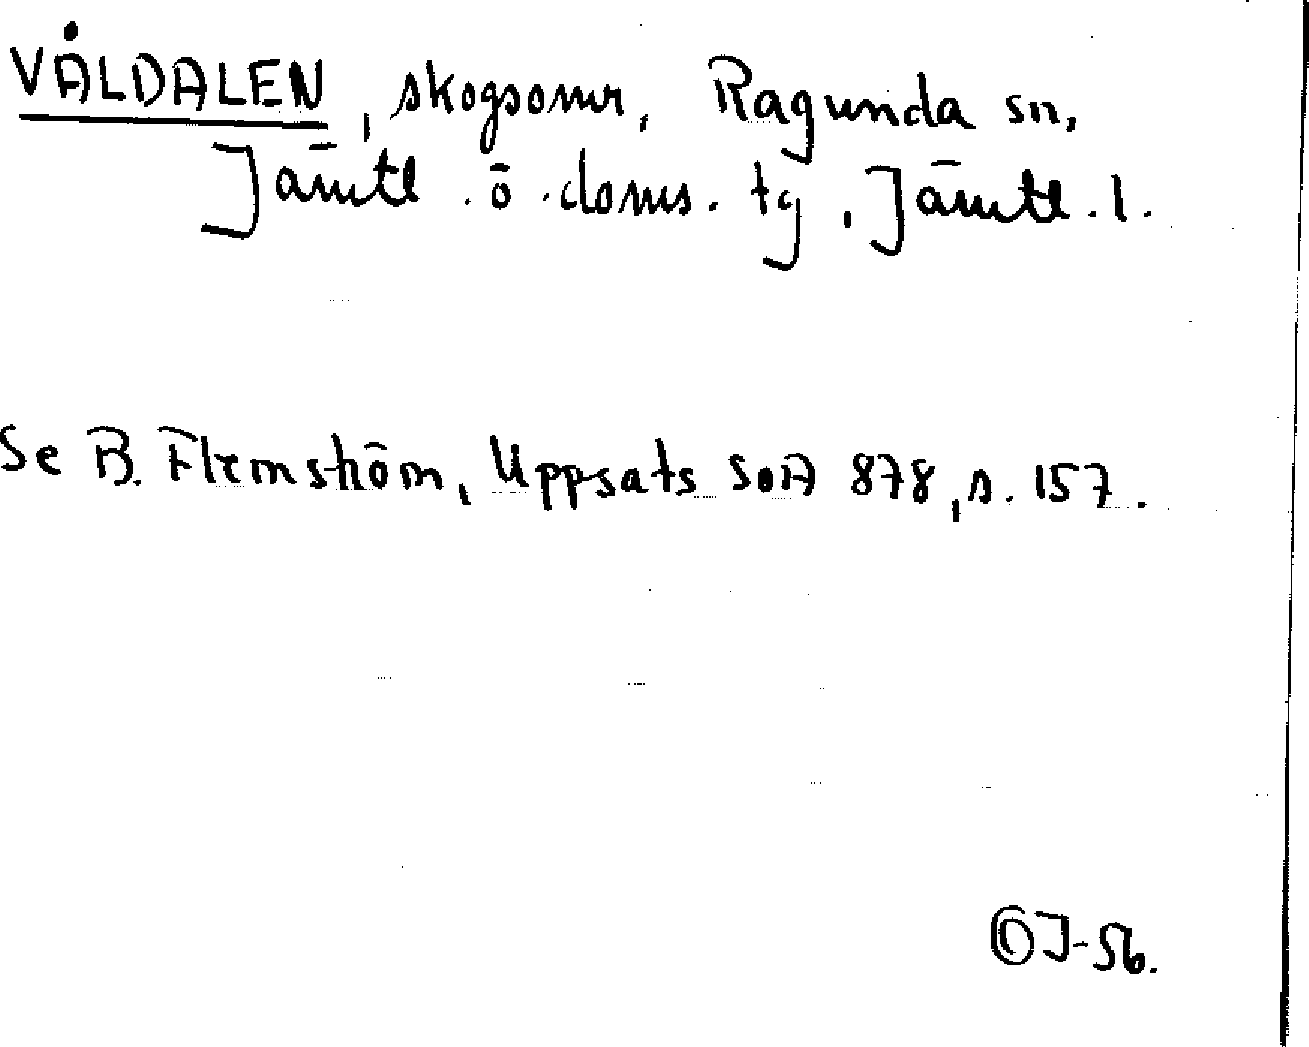 VÅLDALEN, skogsomr, Ragunda sn,
Jämtl. ö. doms. tg, Jämtl. l.
Se B. Flemström, Uppsats SOA 878, s. 157.
J-56.